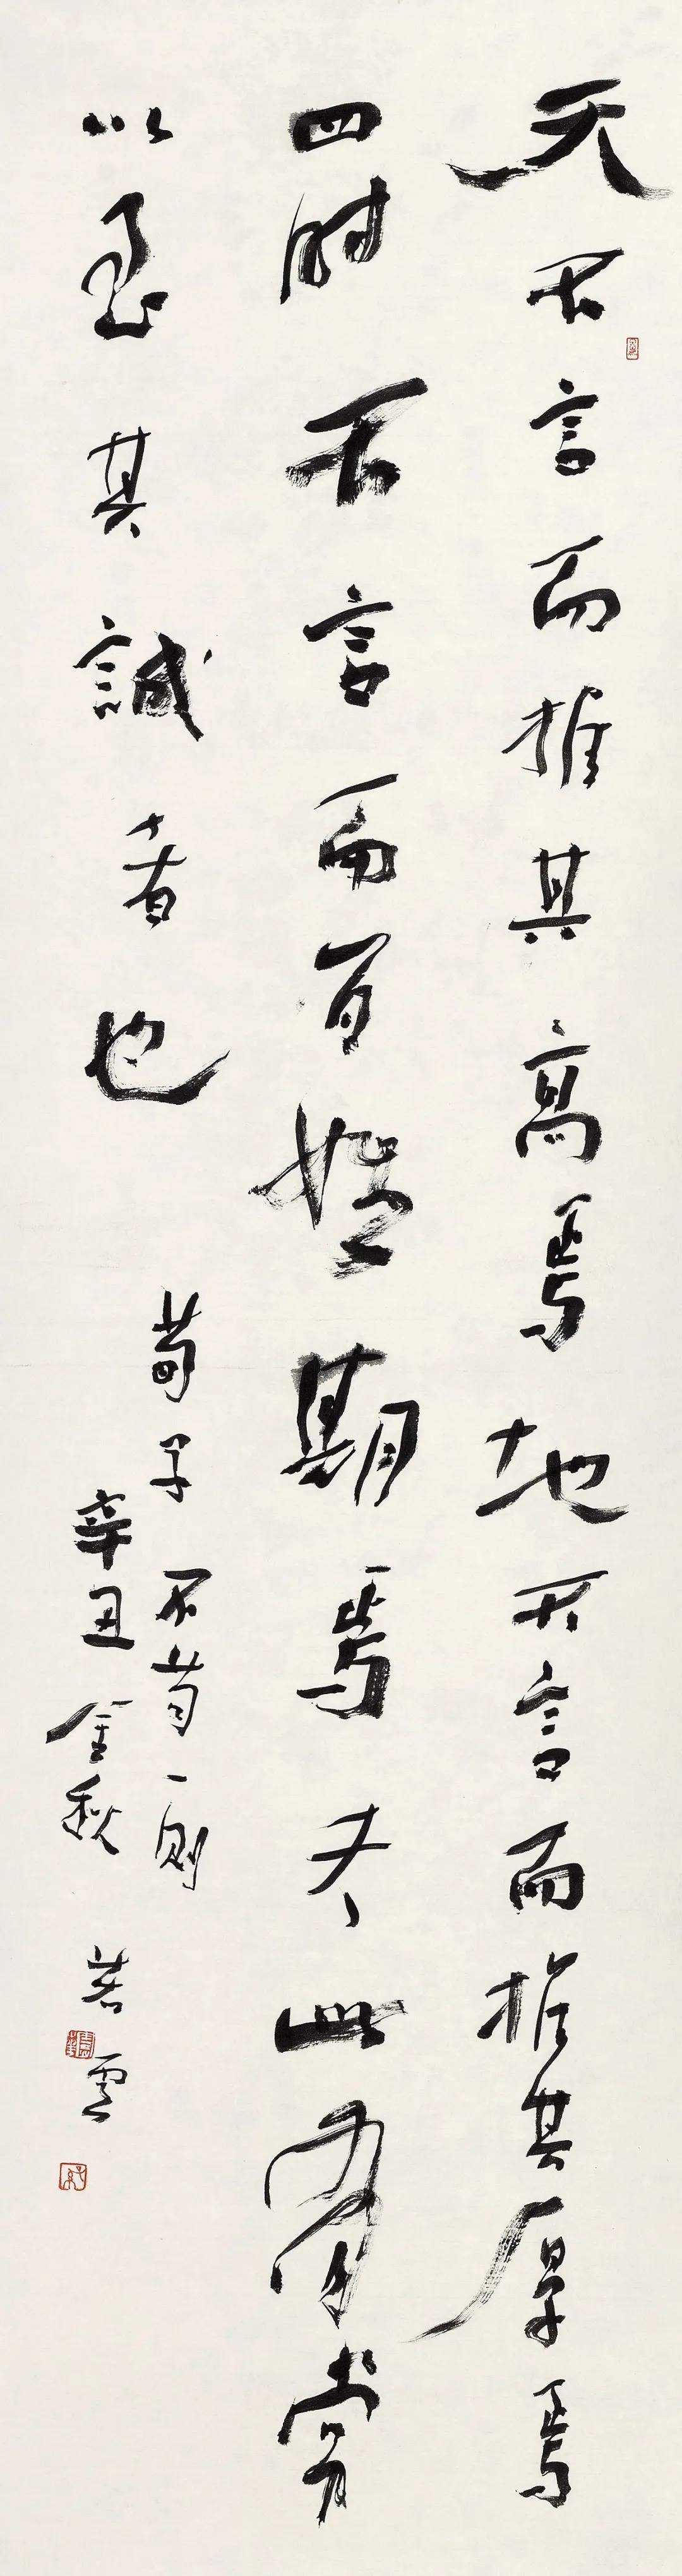 天不言而推其高焉地不言而推其厚焉
四时不言而百姓期焉夫此有常
以至其誠者也
荀子不苟一则
辛丑金秋 若雲